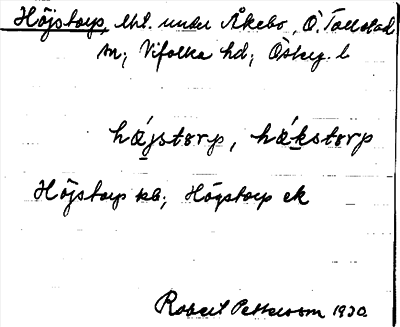 Höjstorp, lht. under Åkebo, Ö. Tollstad
sn; Vifolka hd; Österg. l
hǽjstorp, hǽkstorp
Höjstorp kb; Högstorp ek
Robert Pettersson 1930